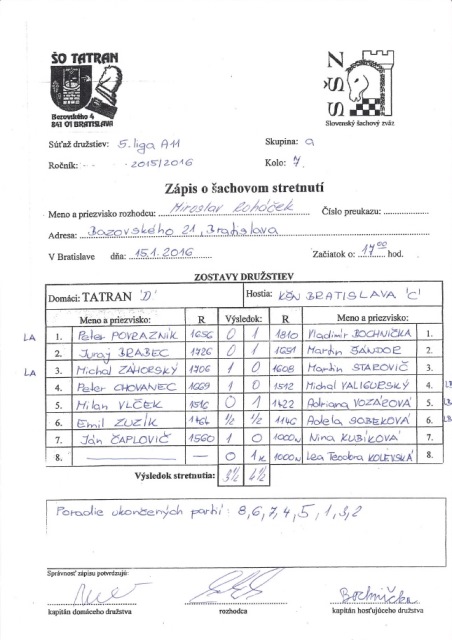 ŠO TATRAN
Bazovského 4
841 01 BRATISLAVA
SŠZ
Slovenský šachový zväz
Súťaž družstiev: 5. liga A11
Skupina: a
Ročník: 2015/2016
Kolo: 7.
Zápis o šachovom stretnutí
Meno a priezvisko rozhodcu: Miroslav Roháček
Číslo preukazu:
Adresa: Bazovského 21, Bratislava
V Bratislave dňa: 15.1.2016 Začiatok o: 17 00 hod.
ZOSTAVY DRUŽSTIEV
Domáci: TATRAN 'D' Hostia: KŠN BRATISLAVA 'C'
Meno a priezvisko: R Výsledok: R Meno a priezvisko:
LA 1. Peter POVRAZNÍK 1656 0 1 1810 Vladimír BOCHNIČKA 1.
2. Juraj BRABEC 1726 0 1 1691 Martin ŠÁNDOR 2.
LA 3. Michal ZÁHORSKÝ 1706 1 0 1608 Martin STAROVIČ 3.
4. Peter CHOVANEC 1669 1 0 1512 Michal VALIGURSKÝ 4. LB
5. Milan VLČEK 1516 0 1 1422 Adriana VOZÁROVÁ 5. LB
6. Emil ZUZÍK 1464 ½ ½ 1146 Adela SOBEKOVÁ 6. LB
7. Ján ČAPLOVIČ 1560 1 0 1000N Nina KUBÍKOVÁ 7.
8. — — 0 1K 1000N Lea Teodora KOLEVSKÁ 8.
Výsledok stretnutia: 3½ 4½
Poradie ukončených partií: 8,6,7,4,5,1,3,2
Správnosť zápisu potvrdzujú:
Bochnička
kapitán domáceho družstva rozhodca kapitán hosťujúceho družstva